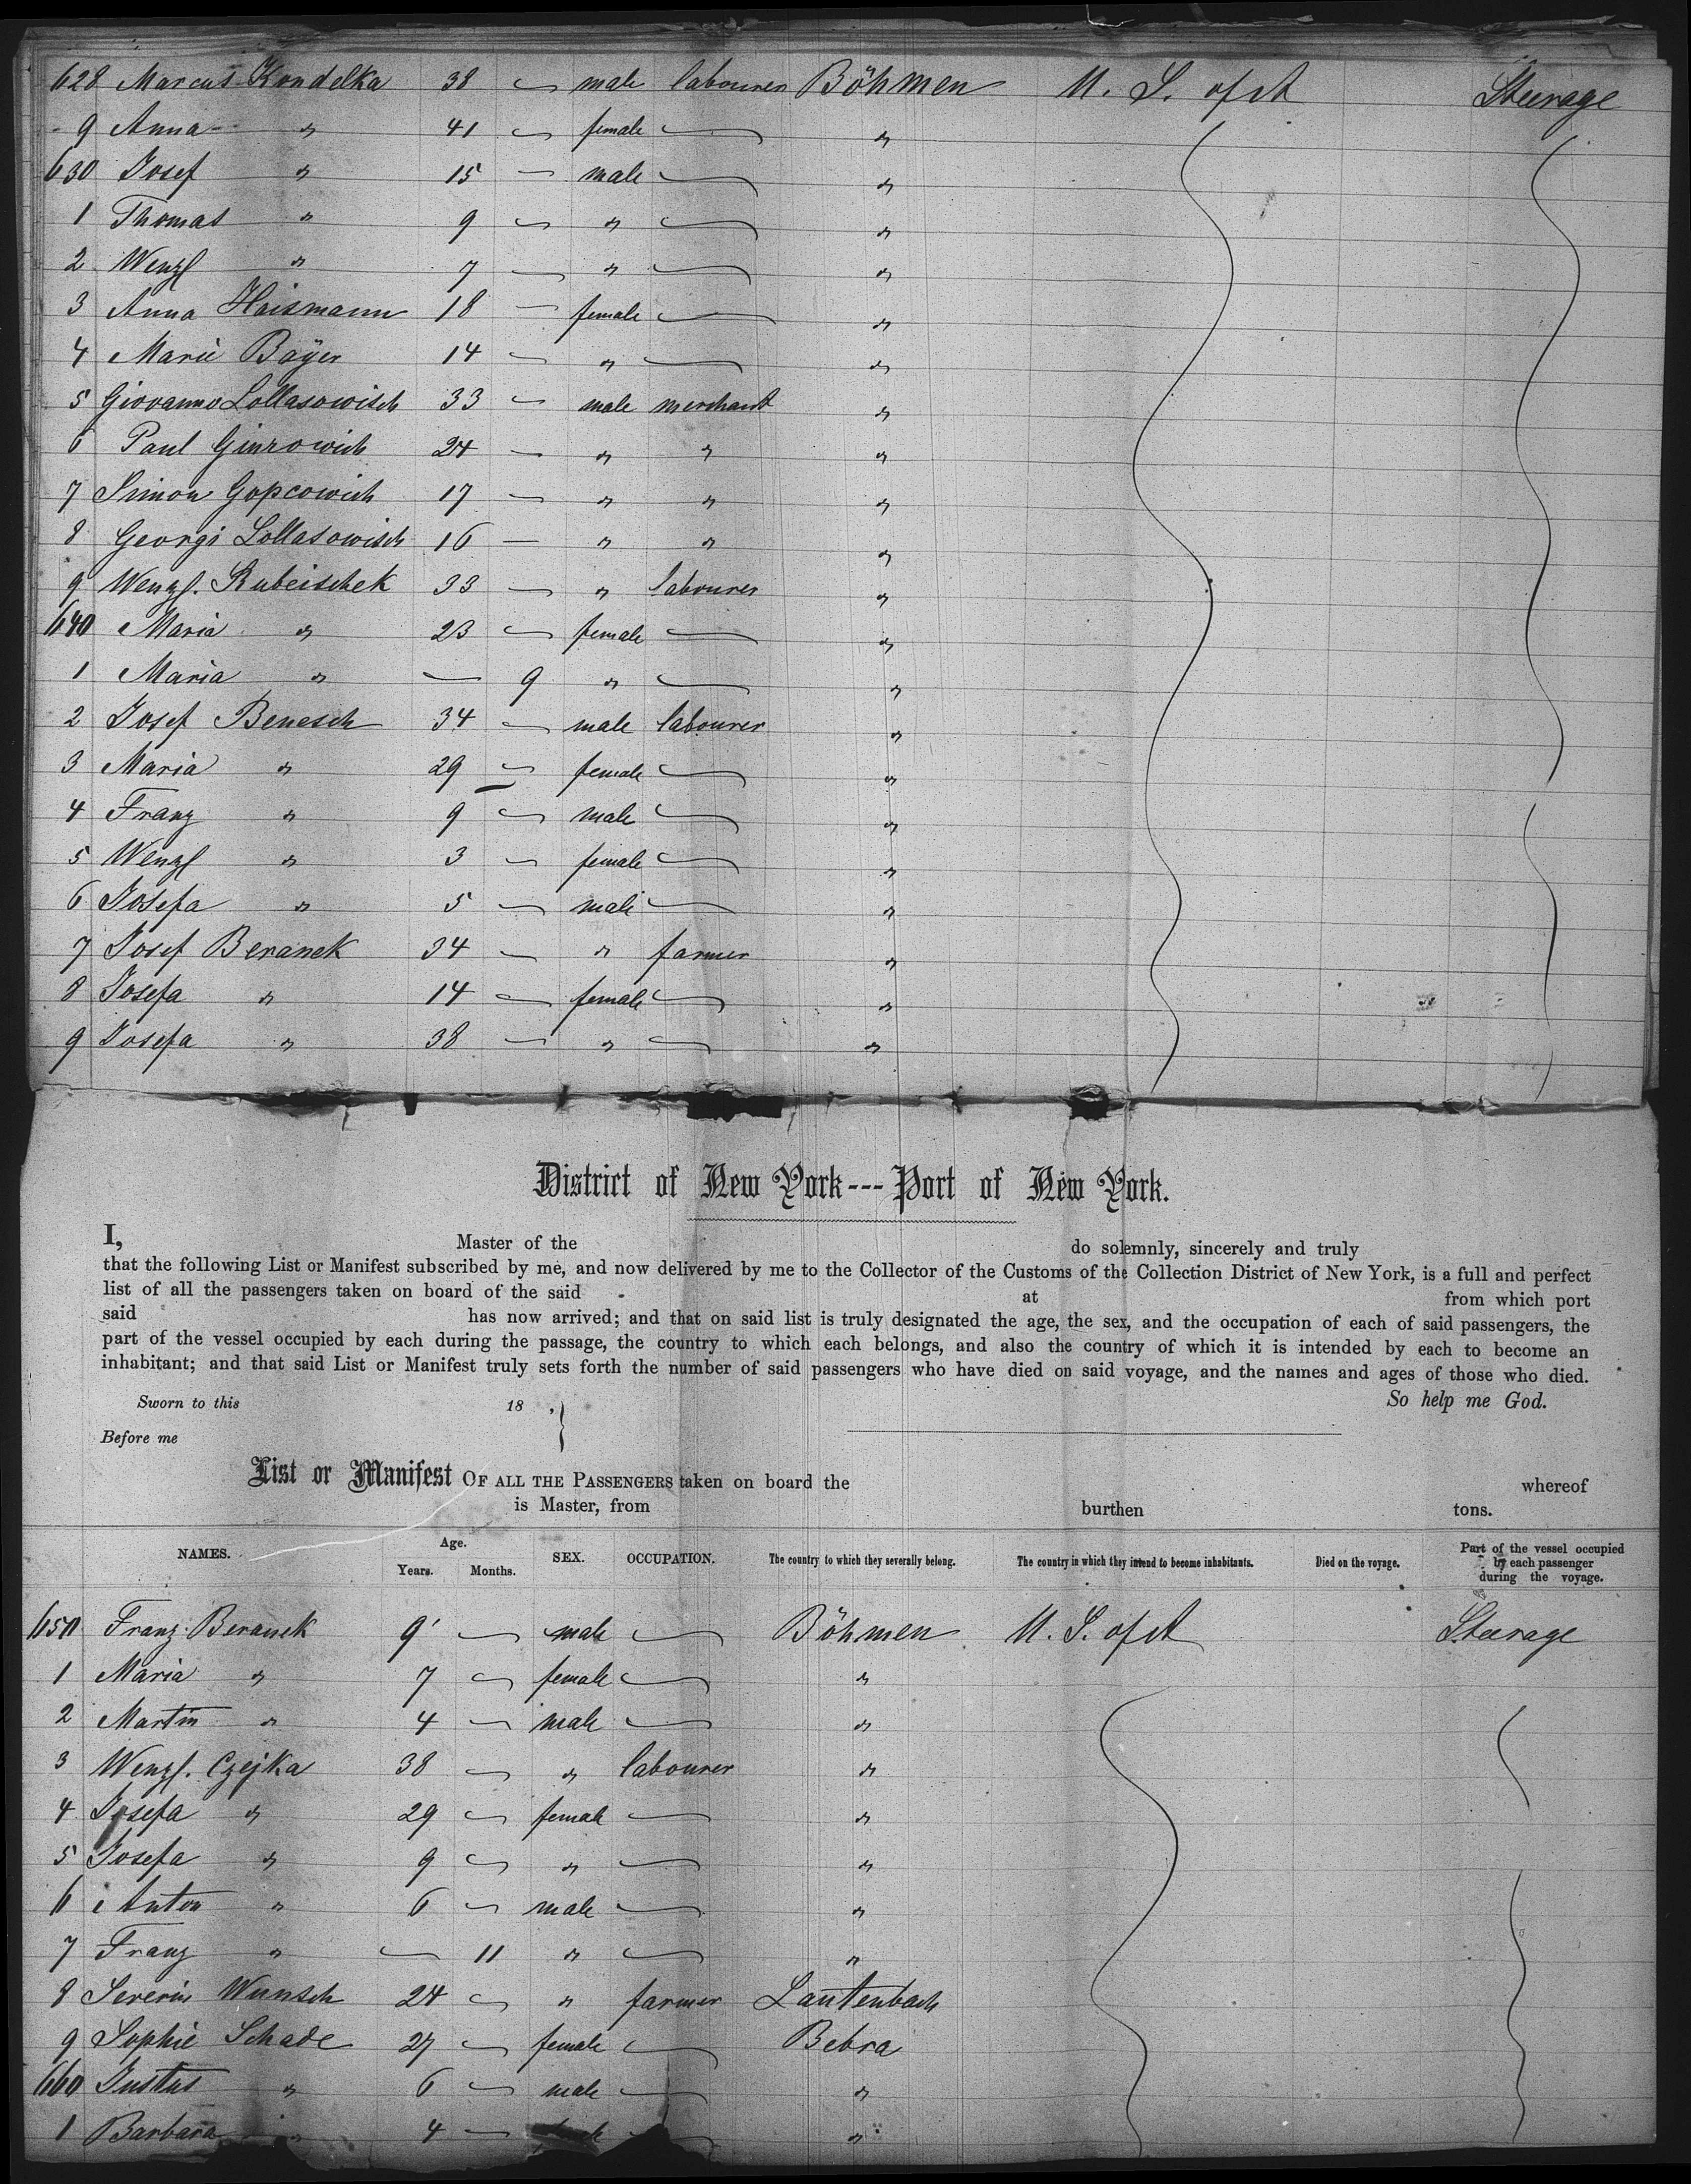 628 Marcus Kondelka 38 male labourer Böhmen U. S. of A Steerage
9 Anna " 41 female "
630 Josef " 15 male "
1 Thomas " 9 " "
2 Wenzl " 7 " "
3 Anna Haismann 18 female "
4 Marie Bayer 14 " "
5 Giovanno Lollasowisch 33 male merchant "
6 Paul Ginrowich 24 " " "
7 Simon Gopcowich 17 " " "
8 Georgi Lollasowisch 16 " " "
9 Wenzl. Rubeischek 33 " labourer "
640 Maria " 23 female "
1 Maria " — 9 " "
2 Josef Benesch 34 male labourer "
3 Maria " 29 female "
4 Franz " 9 male "
5 Wenzl " 3 female "
6 Josefa " 5 male "
7 Josef Beranek 34 " farmer "
8 Josefa " 14 female "
9 Josefa " 38 " "
District of New York---Port of New York.
I, Master of the do solemnly, sincerely and truly
that the following List or Manifest subscribed by me, and now delivered by me to the Collector of the Customs of the Collection District of New York, is a full and perfect
list of all the passengers taken on board of the said at from which port
said has now arrived; and that on said list is truly designated the age, the sex, and the occupation of each of said passengers, the
part of the vessel occupied by each during the passage, the country to which each belongs, and also the country of which it is intended by each to become an
inhabitant; and that said List or Manifest truly sets forth the number of said passengers who have died on said voyage, and the names and ages of those who died.
Sworn to this 18 , So help me God.
Before me
List or Manifest OF ALL THE PASSENGERS taken on board the whereof
is Master, from burthen tons.
NAMES. Age. Years. Months. SEX. OCCUPATION. The country to which they severally belong. The country in which they intend to become inhabitants. Died on the voyage. Part of the vessel occupied by each passenger during the voyage.
650 Franz Beranek 9 male Böhmen U. S. of A Steerage
1 Maria " 7 female "
2 Martin " 4 male "
3 Wenzl. Czejka 38 " labourer "
4 Josefa " 29 female "
5 Josefa " 9 " "
6 Anton " 6 male "
7 Franz " — 11 " "
8 Severin Wunsch 24 " farmer Lautenbach
9 Sophie Schade 27 female Bebra
660 Justus " 6 male "
1 Barbara " 4 "